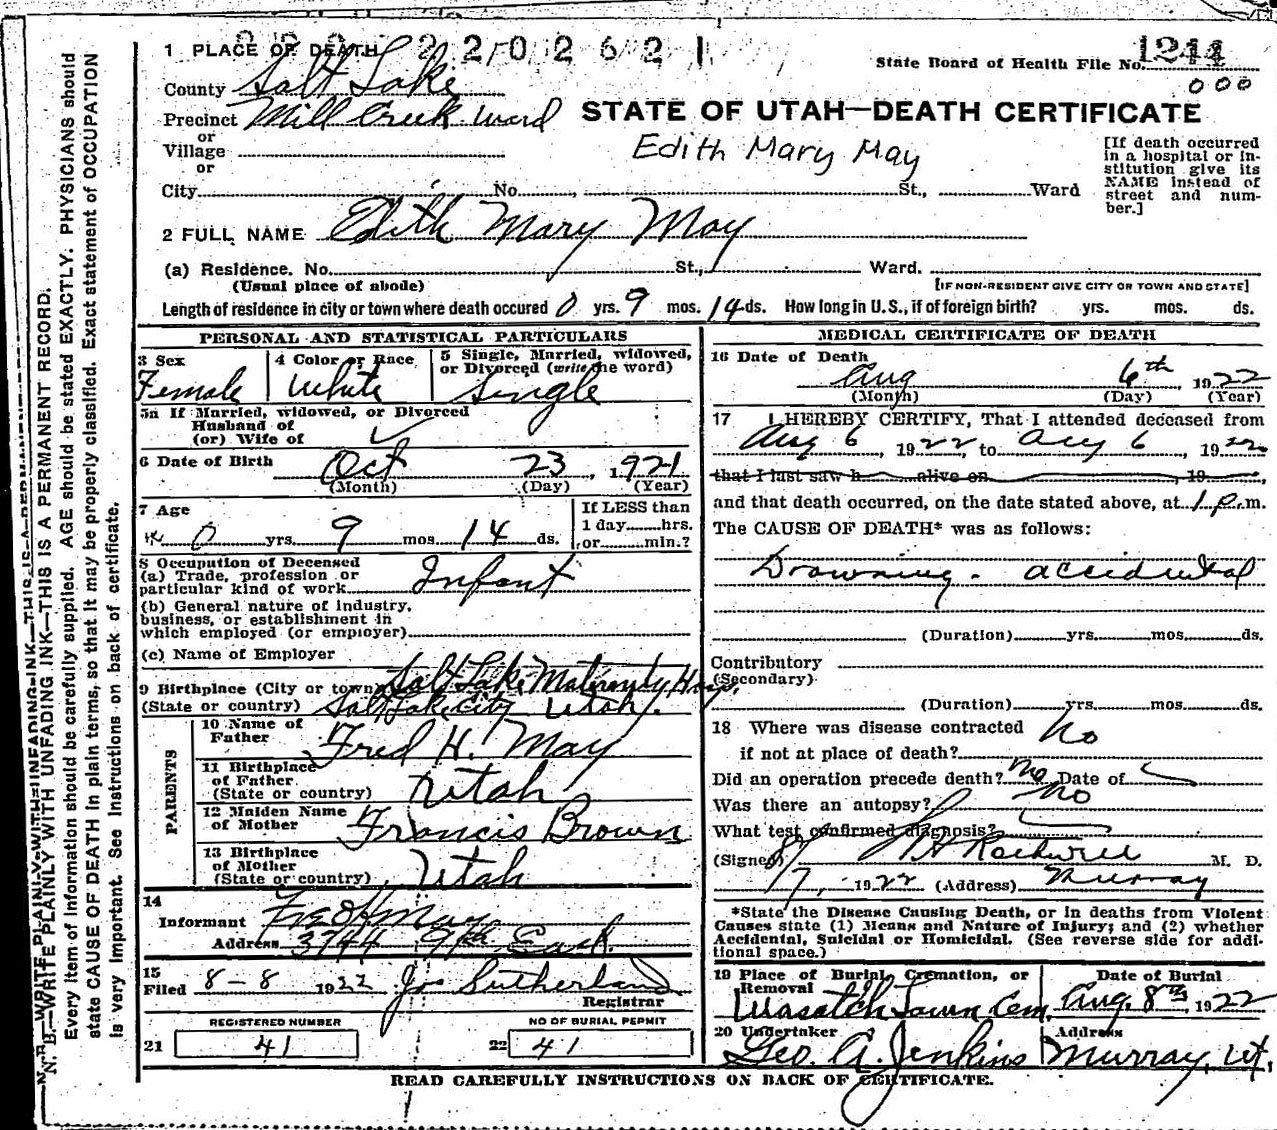 2202621
1 PLACE OF DEATH
State Board of Health File No. 1244
000
County Salt Lake
Precinct Mill Creek Ward
STATE OF UTAH—DEATH CERTIFICATE
or
Village
or
Edith Mary May
[If death occurred in a hospital or institution give its NAME instead of street and number.]
City No. St., Ward
2 FULL NAME Edith Mary May
(a) Residence. No. St., Ward.
(Usual place of abode) [IF NON-RESIDENT GIVE CITY OR TOWN AND STATE]
Length of residence in city or town where death occured 0 yrs. 9 mos. 14 ds. How long in U.S., if of foreign birth? yrs. mos. ds.
PERSONAL AND STATISTICAL PARTICULARS
3 Sex Female
4 Color or Race White
5 Single, Married, widowed, or Divorced (write the word) Single
5a If Married, widowed, or Divorced
Husband of
(or) Wife of
6 Date of Birth Oct 23, 1921
(Month) (Day) (Year)
7 Age 0 yrs. 9 mos. 14 ds.
If LESS than
1 day hrs.
or min.?
8 Occupation of Deceased
(a) Trade, profession or
particular kind of work Infant
(b) General nature of industry,
business, or establishment in
which employed (or employer)
(c) Name of Employer
9 Birthplace (City or town) Salt Lake Maternity Hosp.
(State or country) Salt Lake City Utah.
PARENTS
10 Name of
Father Fred H. May
11 Birthplace
of Father
(State or country) Utah
12 Maiden Name
of Mother Francis Brown
13 Birthplace
of Mother
(State or country) Utah
14
Informant Fred H May
Address 3744 9th East.
15
Filed 8-8 1922 Jos Sutherland
Registrar
REGISTERED NUMBER NO OF BURIAL PERMIT
21 41 22 41
MEDICAL CERTIFICATE OF DEATH
16 Date of Death
Aug 6th, 1922
(Month) (Day) (Year)
17 I HEREBY CERTIFY, That I attended deceased from
Aug 6, 1922, to Aug 6, 1922
that I last saw h alive on 19
and that death occurred, on the date stated above, at 1 p.m.
The CAUSE OF DEATH* was as follows:
Drowning. accidental
(Duration) yrs. mos. ds.
Contributory
(Secondary)
(Duration) yrs. mos. ds.
18 Where was disease contracted No
if not at place of death?
Did an operation precede death? No Date of
Was there an autopsy? No
What test confirmed diagnosis?
(Signed) Rockwell M. D.
8/7, 1922 (Address) Murray
*State the Disease Causing Death, or in deaths from Violent
Causes state (1) Means and Nature of Injury; and (2) whether
Accidental, Suicidal or Homicidal. (See reverse side for additional space.)
19 Place of Burial, Cremation, or
Removal
Wasatch Lawn Cem.
Date of Burial
Aug. 8th, 1922
20 Undertaker
Geo. A. Jenkins
Address
Murray, Ut.
READ CAREFULLY INSTRUCTIONS ON BACK OF CERTIFICATE.
N. B.—WRITE PLAINLY WITH UNFADING INK—THIS IS A PERMANENT RECORD.
Every item of information should be carefully supplied. AGE should be stated EXACTLY. PHYSICIANS should
state CAUSE OF DEATH in plain terms, so that it may be properly classified. Exact statement of OCCUPATION
is very important. See instructions on back of certificate.